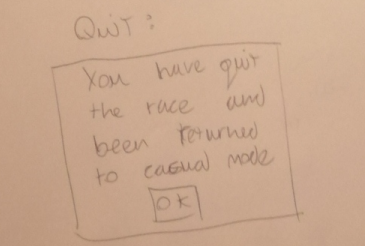 Quit:
You have quit
the race and
been returned
to casual mode
OK